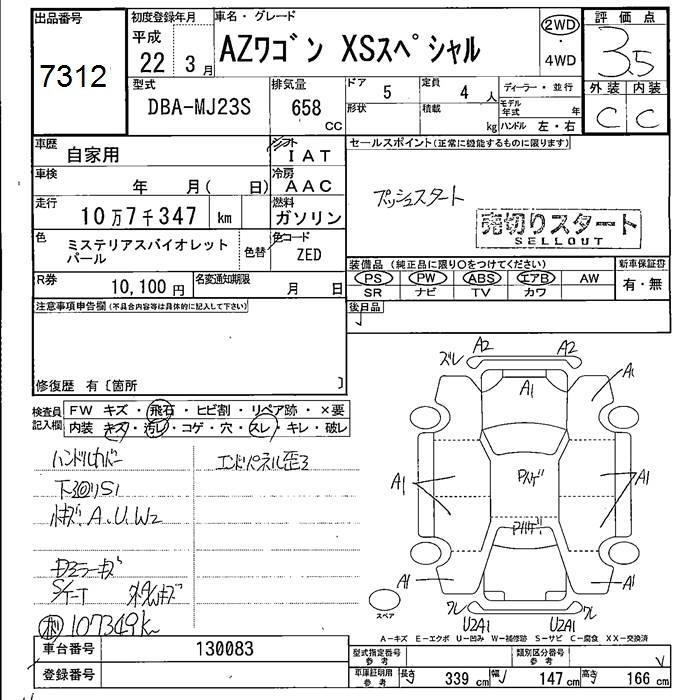 出品番号
7312
初度登録年月
平成
22 3月
車名・グレード
AZワゴン XSスペシャル
2WD
・
4WD
評価点
3.5
外装 内装
C C
型式
DBA-MJ23S
排気量
658
CC
ドア
5
定員
4 人
形状
積載
kg
ディーラー・並行
モデル年式 年
ハンドル 左・右
車歴
自家用
シフト
IAT
車検
年 月( 日)
冷房
AAC
走行
10万7千347 km
燃料
ガソリン
色
ミステリアスバイオレット
パール
色替
色コード
ZED
R券
10,100円
名変通知期限
月 日
セールスポイント(正常に機能するものに限ります)
プッシュスタート
売切りスタート
SELLOUT
装備品(純正品に限り○をつけてください)
PS PW ABS エアB AW
SR ナビ TV カワ
新車保証書
有・無
後日品
注意事項申告欄(不具合内容等は具体的に記入して下さい)
修復歴 有〔箇所 〕
検査員
記入欄
FW キズ・飛石・ヒビ割・リペア跡・×要
内装 キズ・汚レ・コゲ・穴・スレ・キレ・破レ
ハンドルカバー
エンドパネル歪3
下回りS1
A.U.W2
ドアミラーキズ
107349k
ズレ A2 A2
A1 A1
A1 A1
A1 A1
U2A1 U2A1
スペア
A-キズ E-エクボ U-凹み W-補修跡 S-サビ C-腐食 XX-交換済
車台番号
130083
登録番号
型式指定番号
参考
類別区分番号
参考
車庫証明用
参考
長さ 339cm 幅 147cm 高さ 166cm